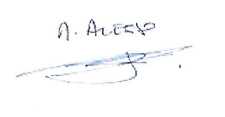 A. ALESSO